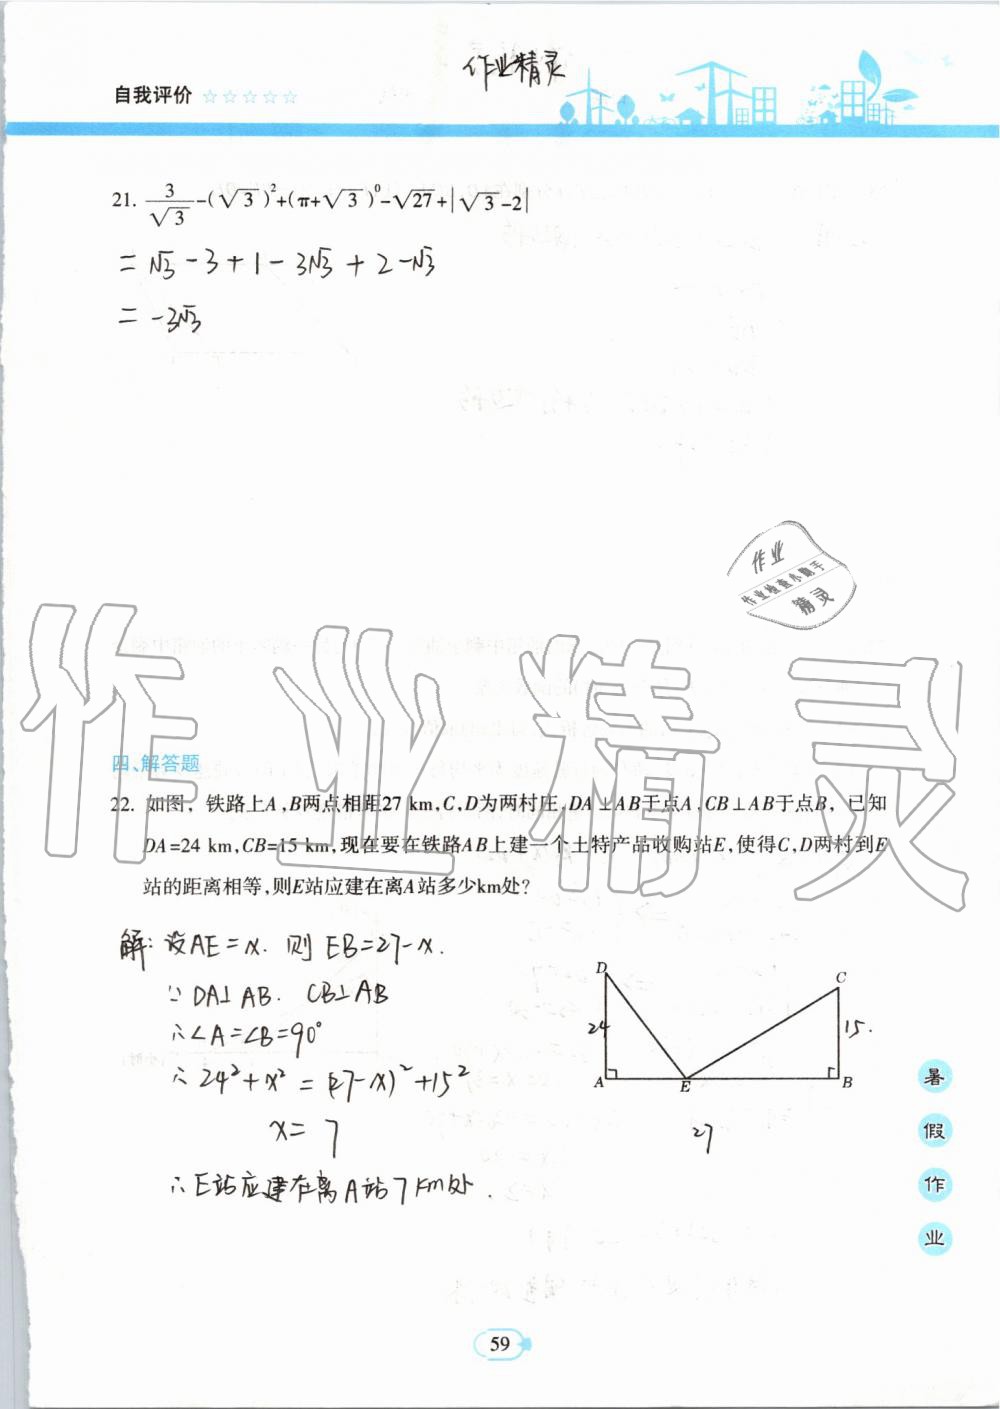 作业精灵
自我评价 ☆☆☆☆☆
21. 3/√3 -(√3)²+(π+√3)⁰-√27+|√3-2|
= √3 - 3 + 1 - 3√3 + 2 - √3
= -3√3
作业
作业检查小助手
精灵
作业精灵
四、解答题
22. 如图, 铁路上A,B两点相距27 km,C,D为两村庄,DA⊥AB于点A,CB⊥AB于点B, 已知
DA=24 km,CB=15 km,现在要在铁路AB上建一个土特产品收购站E,使得C,D两村到E
站的距离相等,则E站应建在离A站多少km处?
解: 设AE=x. 则 EB=27-x.
∵ DA⊥AB. CB⊥AB
∴∠A=∠B=90°
∴ 24²+x² = (27-x)²+15²
x = 7
∴E站应建在离A站7km处.
D
C
24
15.
A
E
B
27
暑
假
作
业
59